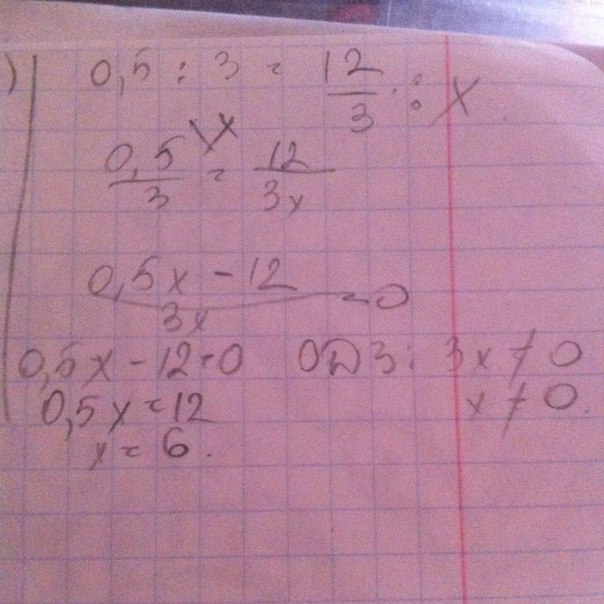 ) 0,5 : 3 = 12/3 : x
0,5/3 \x = 12/3x
0,5x - 12/3x = 0
0,5x - 12 = 0 ОДЗ: 3x ≠ 0
0,5x = 12 x ≠ 0.
x = 6.